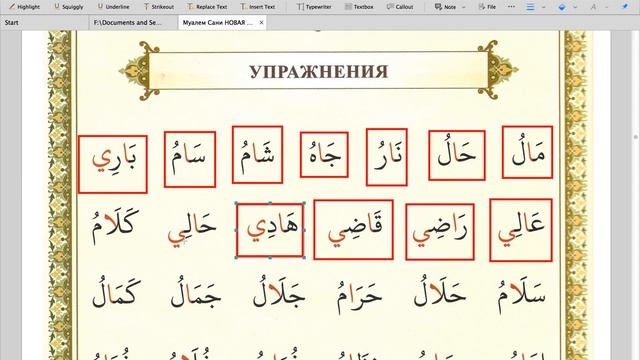 Highlight Squiggly Underline Strikeout Replace Text Insert Text Typewriter Textbox Callout Note File
Start F:\Documents and Se... Муалем Сани НОВАЯ ...
УПРАЖНЕНИЯ
مَالُ حَالُ نَارُ جَاهُ شَامُ سَامُ بَارِي
عَالِي رَاضِي قَاضِي هَادِي حَالِي كَلَامُ
سَلَامُ حَلَالُ حَرَامُ جَلَالُ جَمَالُ كَمَالُ